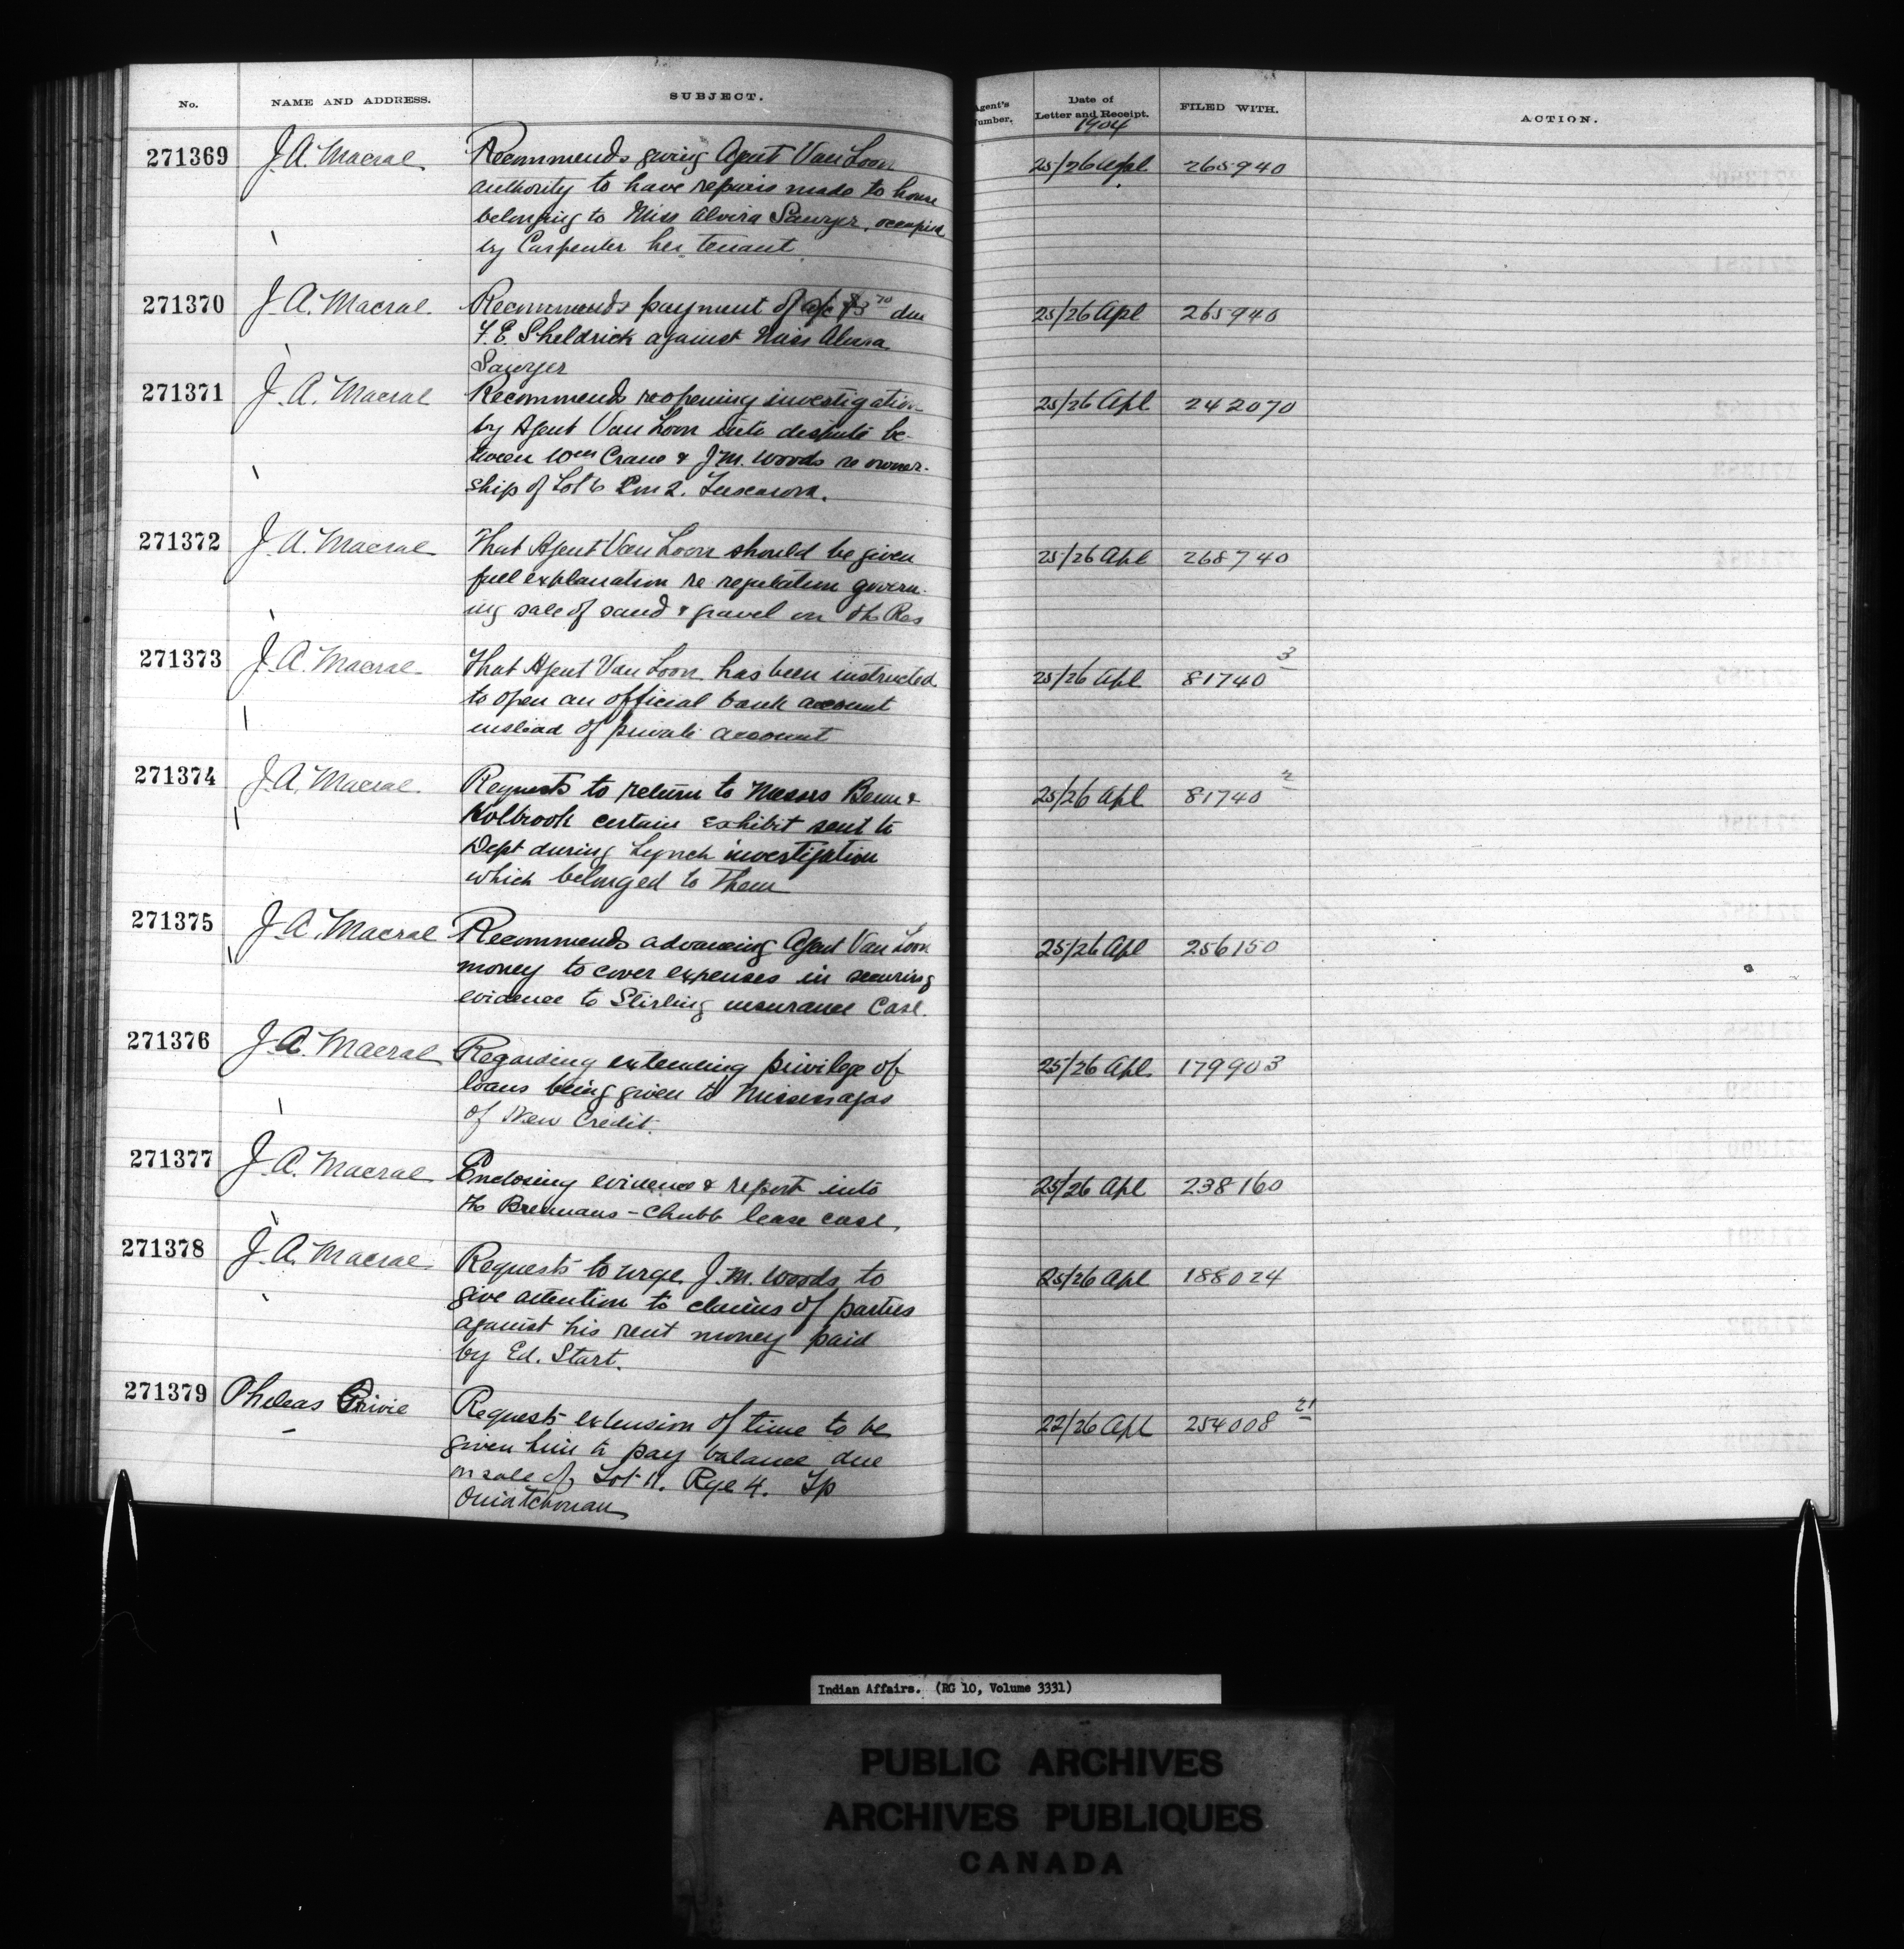 No. NAME AND ADDRESS. SUBJECT. Agent's Number. Date of Letter and Receipt. FILED WITH. ACTION.
1904
271369 J. A. Macrae Recommends giving Agent Van Loon 25/26 Apl 265940
authority to have repairs made to house
belonging to Miss Alvira Sawyer, occupied
by Carpenter her tenant
271370 J. A. Macrae Recommends payment of a/c due 25/26 Apl 265940
F. E. Sheldrick against Miss Alvira
Sawyer
271371 J. A. Macrae Recommends reopening investigation 25/26 Apl 242070
by Agent Van Loon into dispute be-
tween Wm Crane & J. M. Woods re owner-
ship of Lot 6 Con 2. Tuscarora.
271372 J. A. Macrae That Agent Van Loon should be given 25/26 Apl 268740
full explanation re regulation govern-
ing sale of sand & gravel on the Res
271373 J. A. Macrae That Agent Van Loon has been instructed 25/26 Apl 81740 3
to open an official bank account
instead of private account
271374 J. A. Macrae Requests to return to Messrs & 25/26 Apl 81740 2
Holbrook certain exhibit sent to
Dept during Lynch investigation
which belonged to them
271375 J. A. Macrae Recommends advancing Agent Van Loon 25/26 Apl 256150
money to cover expenses in securing
evidence to Stirling insurance Case.
271376 J. A. Macrae Regarding extending privilege of 25/26 Apl 179903
loans being given to Mississagas
of New Credit.
271377 J. A. Macrae Enclosing evidence & report into 25/26 Apl 238160
the - Chubb lease case.
271378 J. A. Macrae Requests to urge J. M. Woods to 25/26 Apl 188024
give attention to claims of parties
against his rent money paid
by Ed. Start.
271379 Pheleas Requests extension of time to be 22/26 Apl 254008 21
given him to pay balance due
on sale of Lot 11. Rge 4. Tp
Ouiatchouan
Indian Affairs. (RG 10, Volume 3331)
PUBLIC ARCHIVES
ARCHIVES PUBLIQUES
CANADA